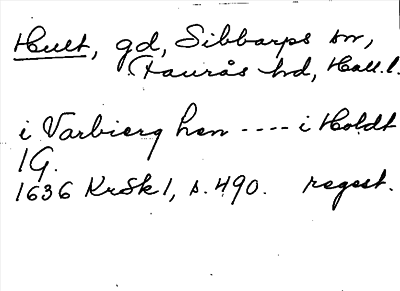 Hult, gd, Sibbarps sn,
Faurås hd, Hall. l.
i Varbierg hen ---- i Holdt
1G.
1636 KrSk 1, s. 490. regest.